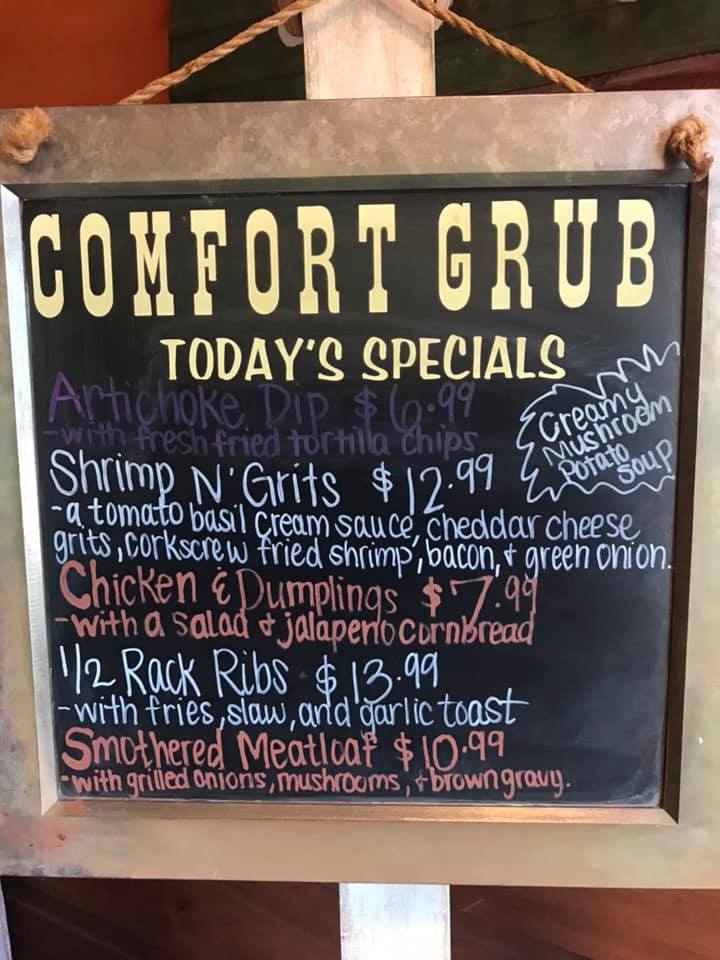 COMFORT GRUB
TODAY'S SPECIALS
Artichoke Dip $6.99
-with fresh fried tortilla chips
Creamy
Mushroom
Potato
Soup
Shrimp N' Grits $12.99
-a tomato basil cream sauce, cheddar cheese
grits, corkscrew fried shrimp, bacon, + green onion.
Chicken & Dumplings $7.99
-with a salad + jalapeno cornbread
1/2 Rack Ribs $13.99
-with fries, slaw, and garlic toast
Smothered Meatloaf $10.99
-with grilled onions, mushrooms, + brown gravy.